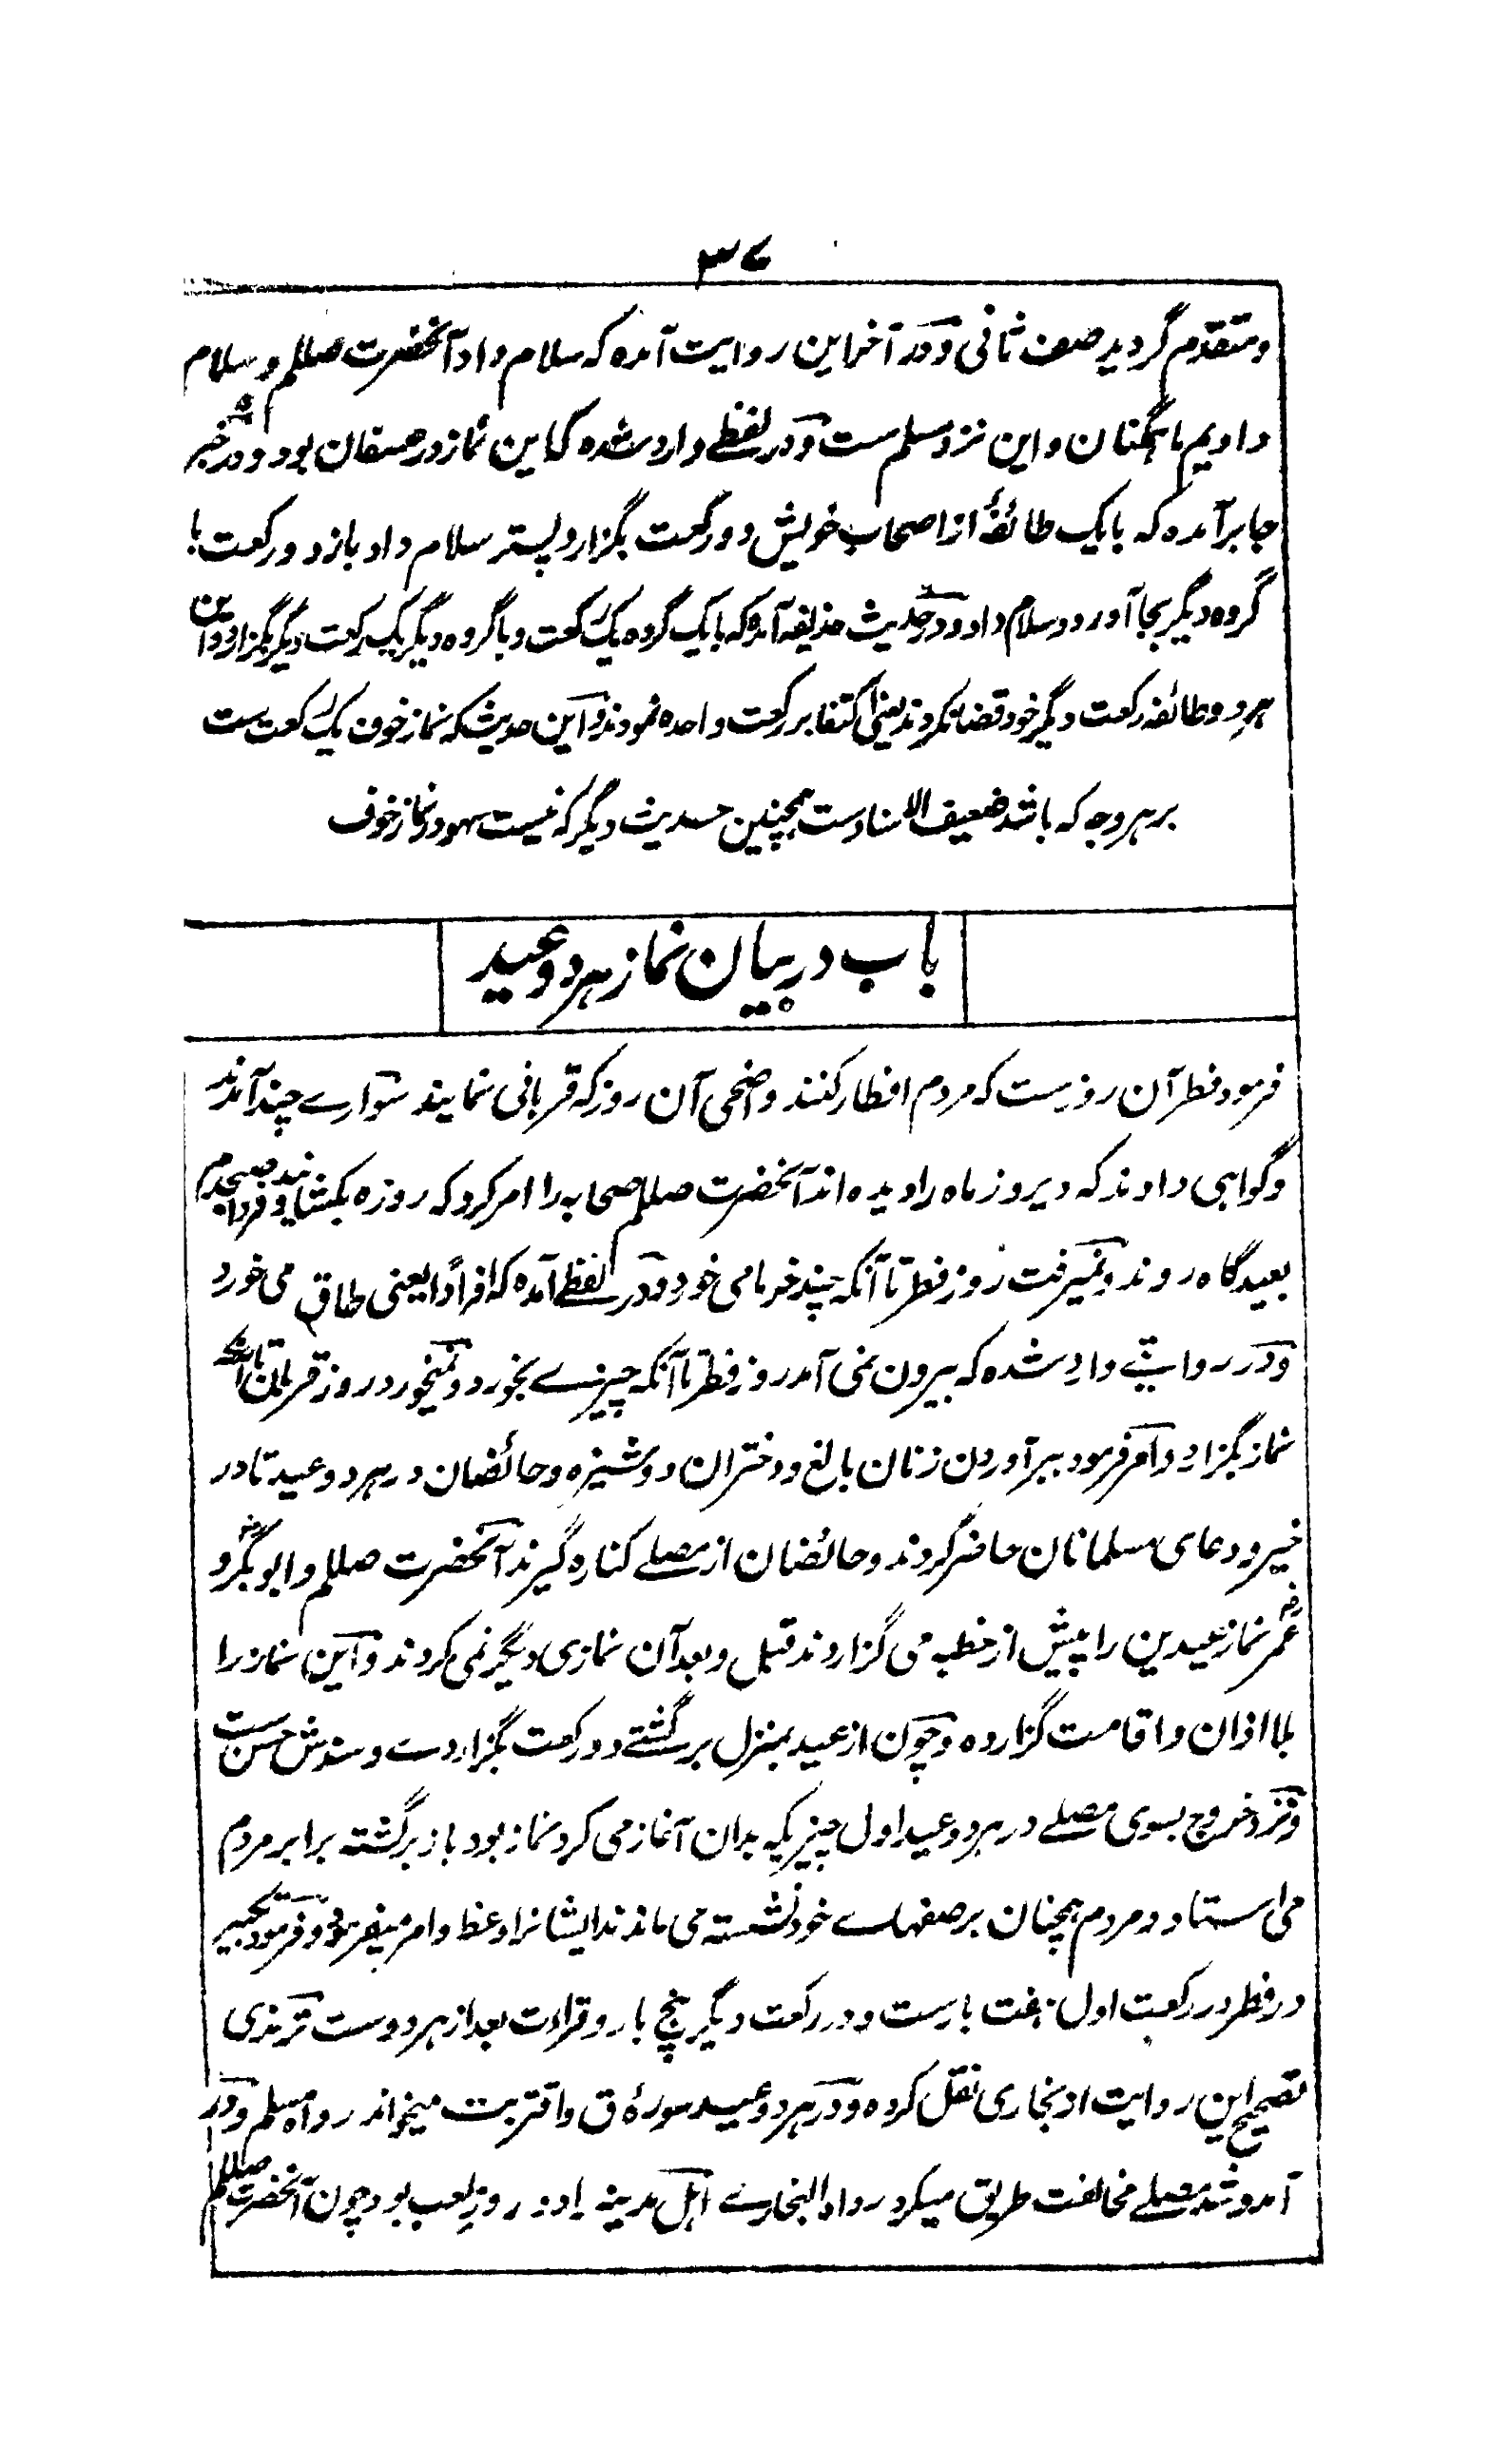 ۳۷
و متقدم گردید صف ثانی و در آخر این روایت آمده که سلام داد آنحضرت صللم و سلام
دادیم ما همگنان و این نزد مسلم ست و در لفظے وارد شده که این نماز در عسفان بود و در خبر
جابر آمده که با یک طائفهٔ از اصحاب خویش دو رکعت بگزارد پستر سلام داد باز دو رکعت با
گروه دیگر بجا آورد و سلام داد و در حدیث حذیفه آمده که با یک گروه یک رکعت و با گروه دیگر یک رکعت دیگر بگزارد و این
هر دو طائفه رکعت دیگر خود قضا نکردند یعنی اکتفا بر رکعت واحده نمودند و این حدیث که نماز خوف یک رکعت ست
بر هر وجه که باشد ضعیف الاسنادست همچنین حدیث دیگر که نیست سهو در نماز خوف
باب در بیان نماز هر دو عید
فرمود فطر آن روزست که مردم افطار کنند و اضحی آن روز که قربانی نمایند سوارے چند آمدند
و گواهی دادند که دیروز ماه را دیده اند آنحضرت صللم صحابه را امر کرد که روزه بکشایند و فردا صبحدم
بعیدگاه روند و نمیرفت روز فطر تا آنکه چند خرما می خورد و در لفظے آمده که افراداً یعنی طاق می خورد
و در روایتے وارد شده که بیرون نمی آمد روز فطر تا آنکه چیزے بخورد و نمیخورد روز قربان تا آنکه
نماز بگزارد و امر فرمود ببرآوردن زنان بالغ و دختران دوشیزه و حائضان در هر دو عید تا در
خیر و دعای مسلمانان حاضر گردند و حائضان از مصلے کناره گیرند آنحضرت صللم و ابوبکر رض و
عمر رض نماز عیدین را پیش از خطبه می گزاردند قبل و بعد آن نمازی دیگر نمی کردند و این نماز را
بلا اذان و اقامت گزارده و چون از عید بمنزل برگشتے دو رکعت بگزاردے و سندش حسن ست
و نزد خروج بسوی مصلے در هر دو عید اول چیزیکه بدان آغاز می کرد نماز بود باز برگشته برابر مردم
می استاد و مردم همچنان بر صفهاے خود نشسته می ماندند ایشانرا وعظ و امر میفرمود و فرمود تکبیر
در فطر در رکعت اول هفت بارست و در رکعت دیگر پنج بار و قراءت بعد از هر دوست ترمذی
تصحیح این روایت از بخاری نقل کرده و در هر دو عید سورهٔ ق و اقتربت میخواند رواه مسلم و در
آمد و شد مصلے مخالفت طریق میکرد رواه البخارے اهل مدینه را دو روز لعب بود چون آنحضرت صللم